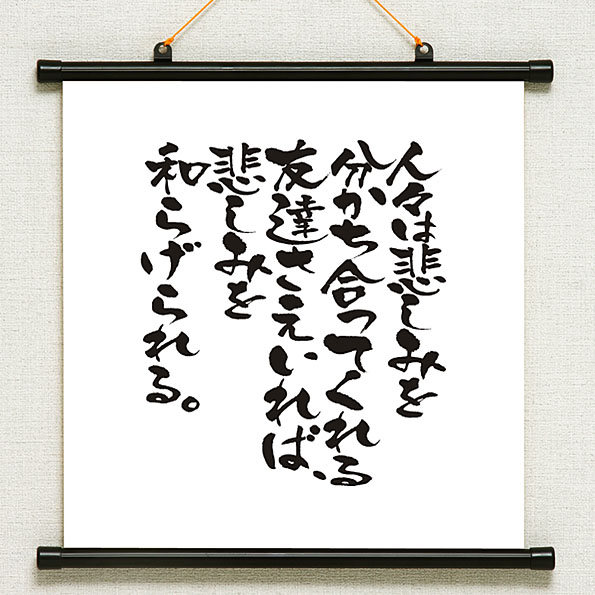 人々は悲しみを
分かち合ってくれる
友達さえいれば、
悲しみを
和らげられる。